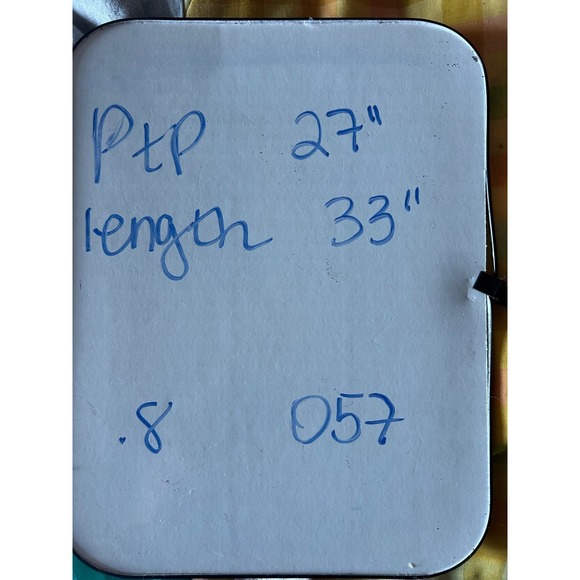 PtP 27"
length 33"
.8 057